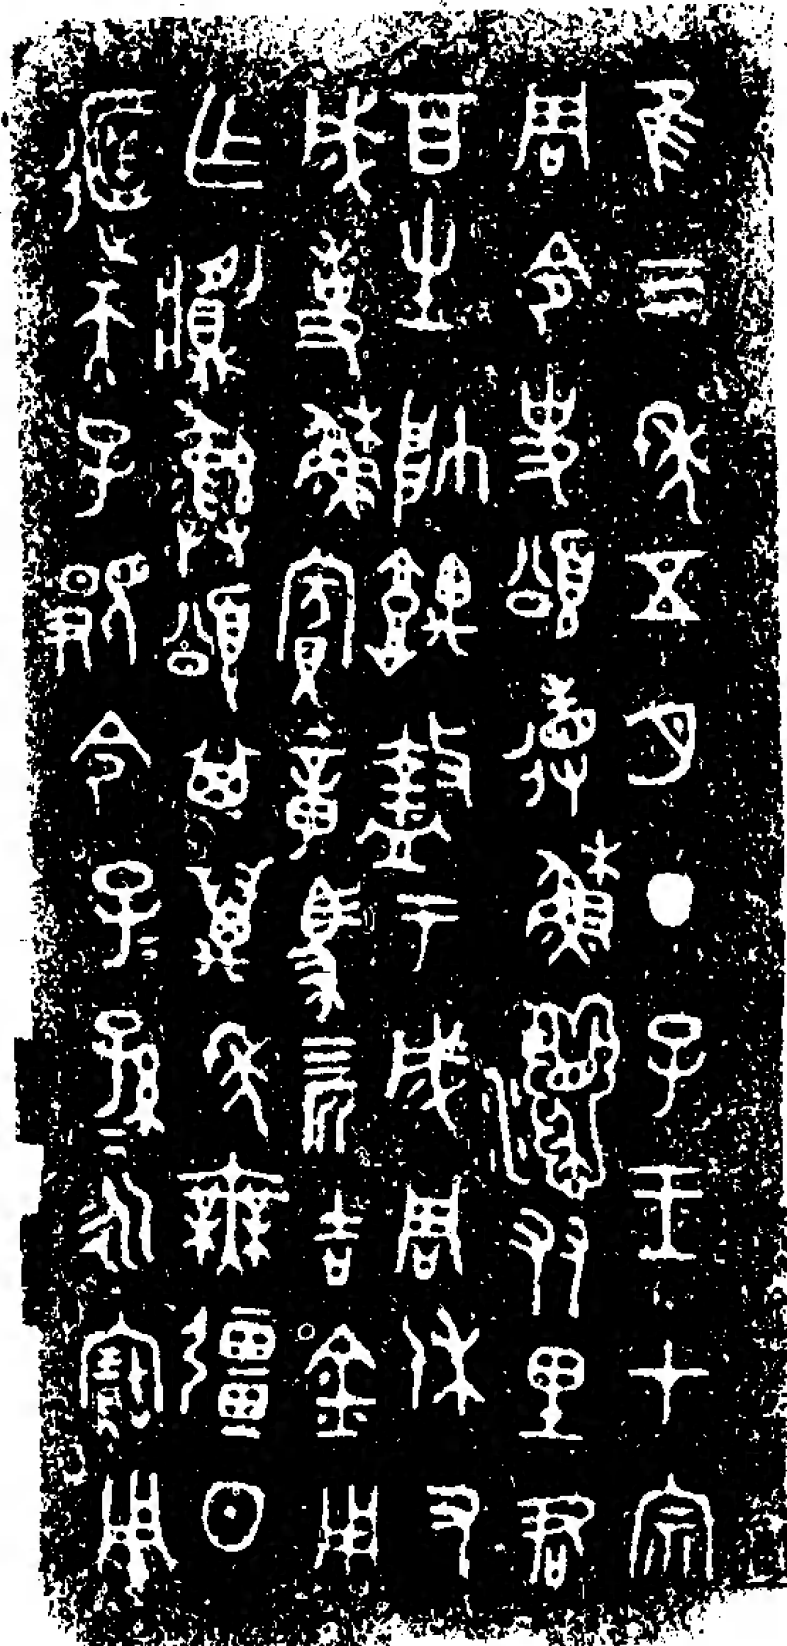 隹三年五月丁子王才宗
周令史頌省穌友里君
百生帥堣盩于成周休又
成事穌賓章馬亖匹吉金用
乍𩰬彝頌其萬年無彊日
天子令子=孫=永寶用